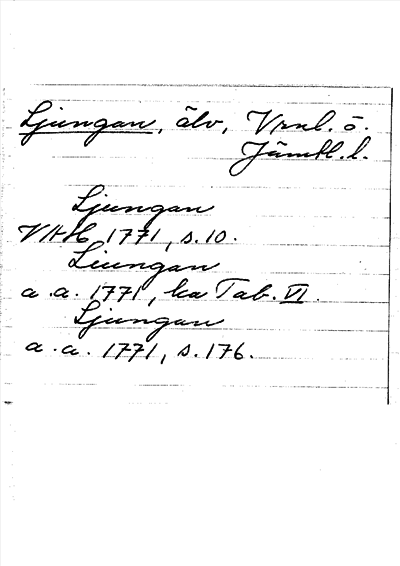 Ljungan, älv, Vrnl. o.
Jämtl. l.
Ljungan
VHH 1771, s. 10.
Liungan
a. a. 1771, ka Tab. VI.
Ljungan
a. a. 1771, s. 176.